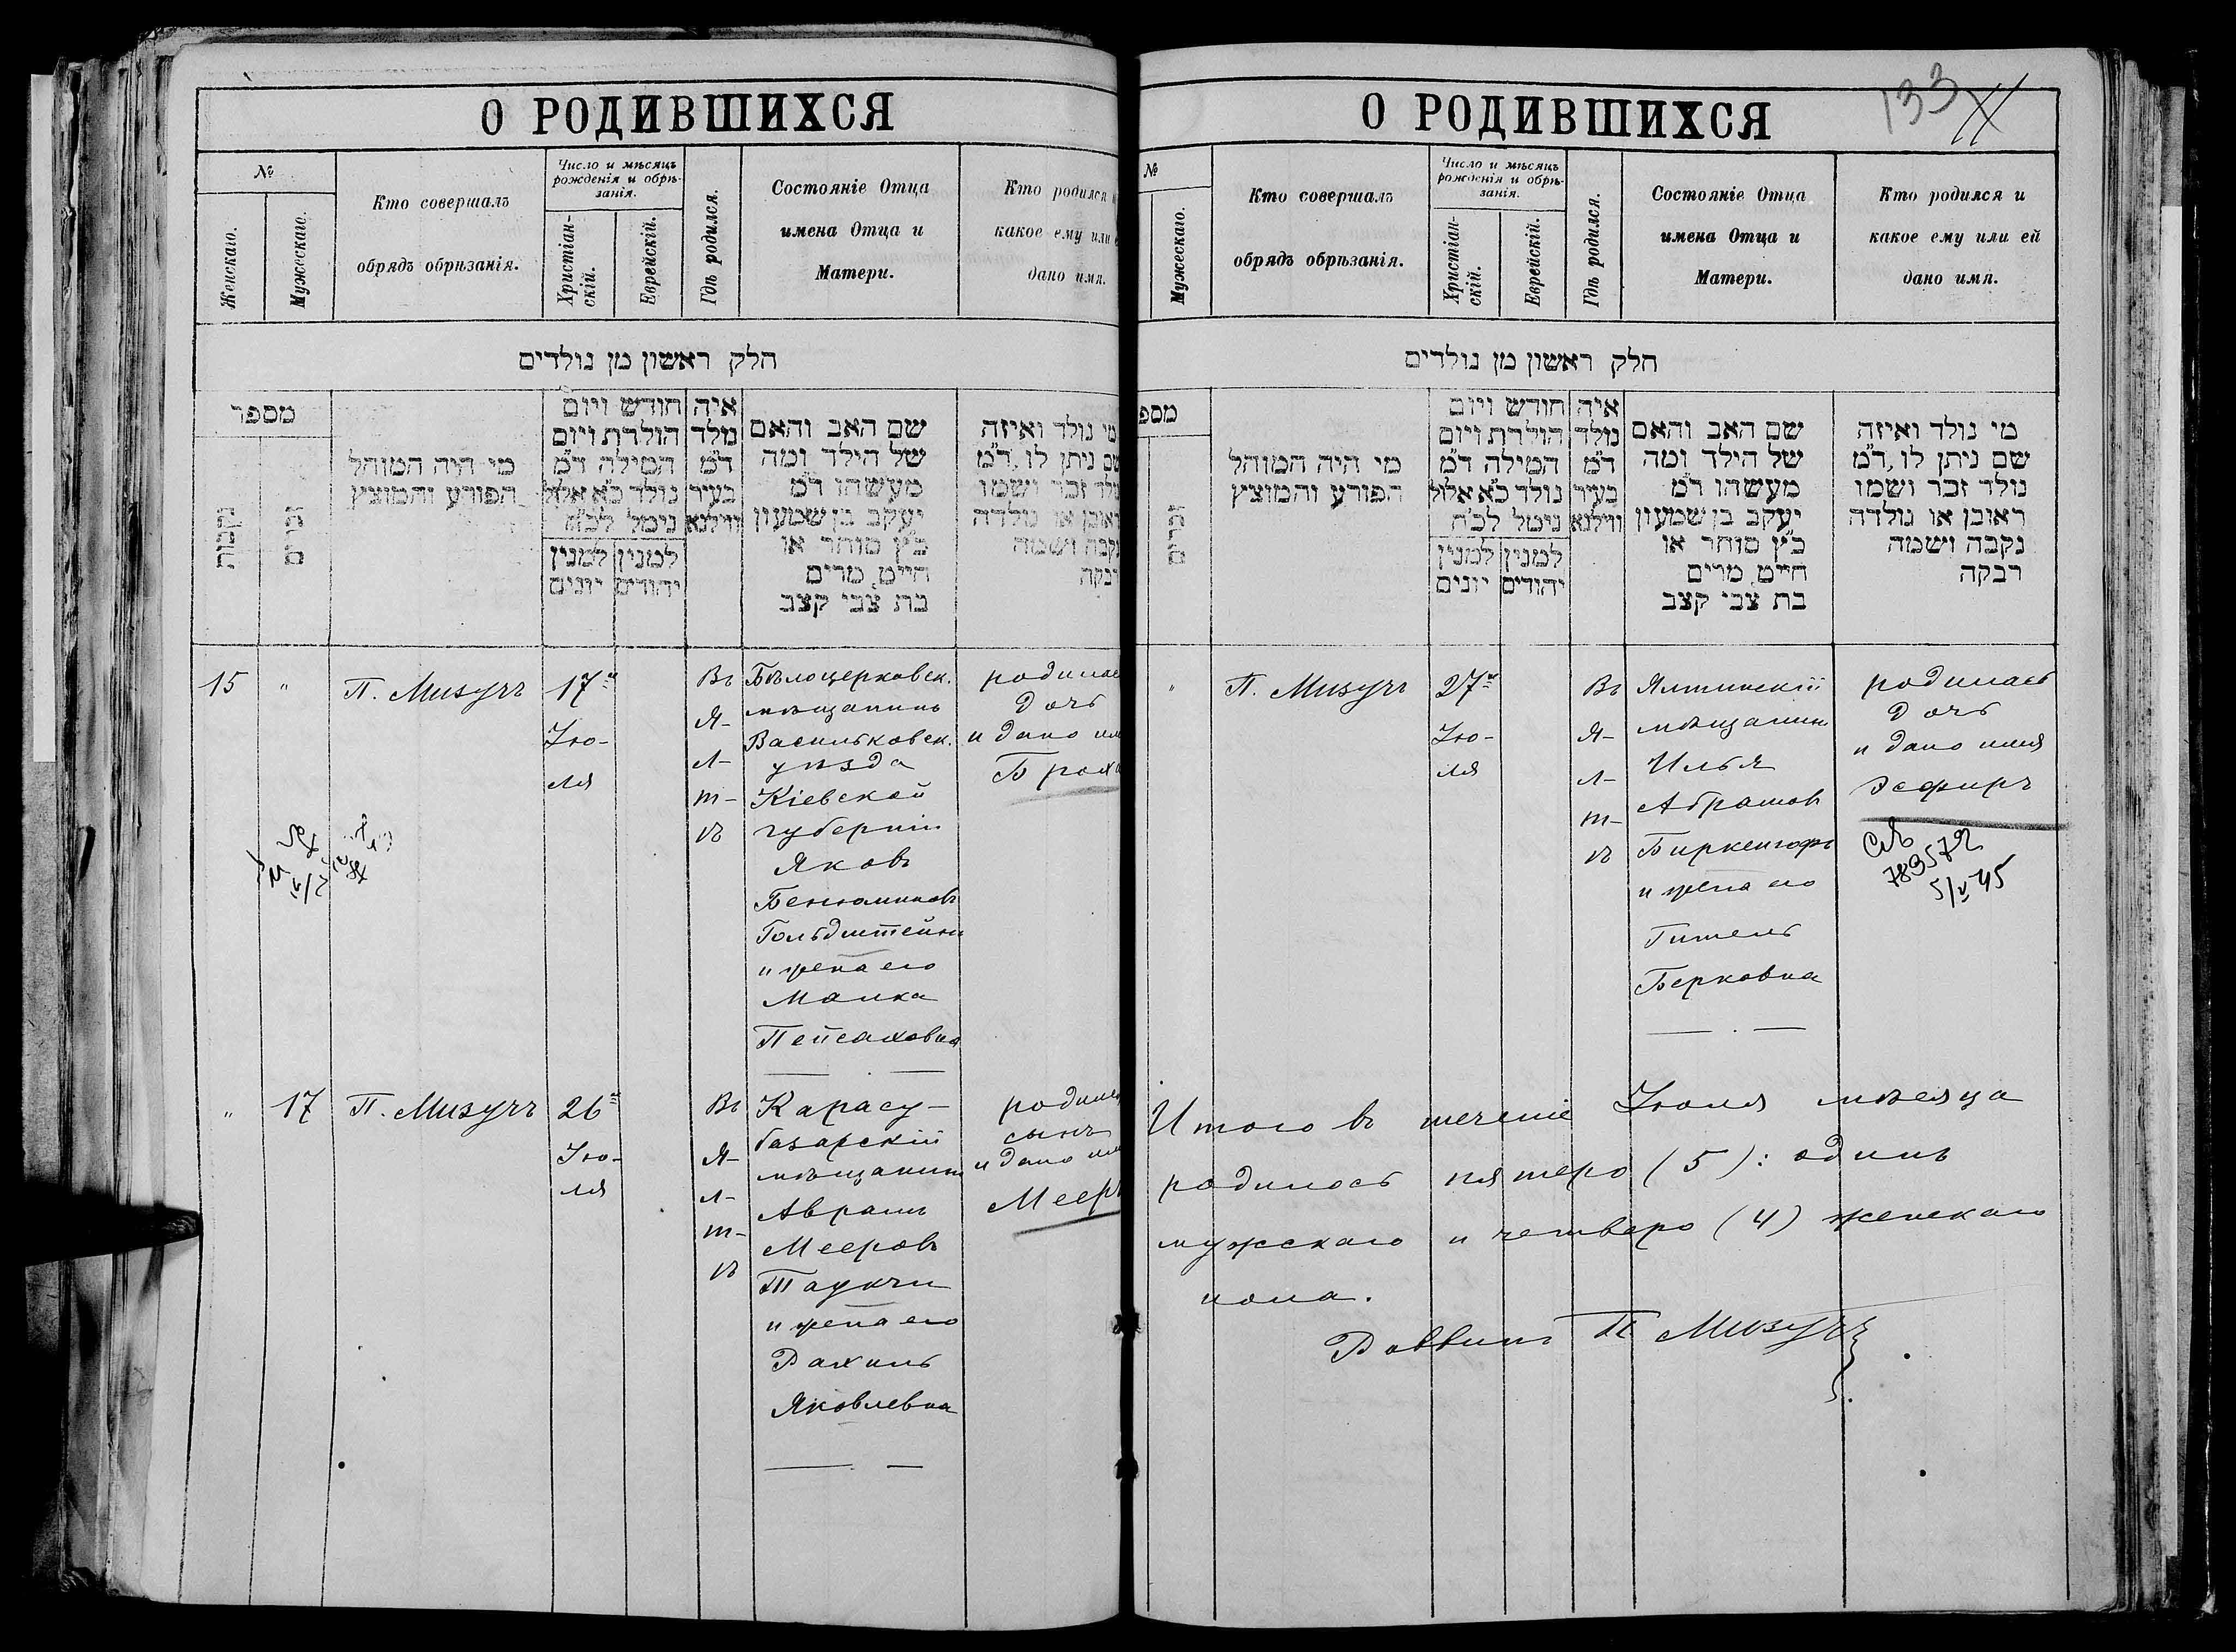 О РОДИВШИХСЯ
№
Женскаго.
Мужескаго.
Кто совершалъ
обрядъ обрѣзанія.
Число и мѣсяцъ
рожденія и обрѣ-
занія.
Христіан-
скій.
Еврейскій.
Гдѣ родился.
Состояніе Отца
имена Отца и
Матери.
Кто родился
какое ему или
дано имя.
חלק ראשון מן נולדים
מספר
נקבות
זכרים
מי היה המוהל
הפורע והמוצץ
חודש ויום
הולדת ויום
המילה ד״מ
נולד כ״א אלול
נימל לכ״ח
למנין למנין
יהודים יונים
איה
נולד
ד״מ
בעיר
ווילנא
שם האב והאם
של הילד ומה
מעשהו ד״מ
יעקב בן שמעון
כ״ץ סוחר או
חייט, מרים
בת צבי קצב
מי נולד ואיזה
שם ניתן לו, ד״מ
נולד זכר ושמו
ראובן או נולדה
נקבה ושמה
15
"
П. Мизучъ
17го
Ію-
ля
Въ
Я-
л-
т-
ѣ
Бѣлоцерковск.
мѣщанинъ
Васильковск.
уѣзда
Кіевской
губерніи
Яковъ
Бенюминовъ
Гольдштейнъ
и жена его
Малка
Пейсаховна
родилас
дочь
и дано им
Броха
"
17
П. Мизучъ
26го
Ію-
ля
Въ
Я-
л-
т-
ѣ
Карасу-
базарскій
мѣщанинъ
Аврамъ
Мееровъ
Таукчи
и жена его
Рахиль
Яковлевна
родился
сынъ
и дано имя
Мееръ
133
О РОДИВШИХСЯ
№
Мужескаго.
Кто совершалъ
обрядъ обрѣзанія.
Число и мѣсяцъ
рожденія и обрѣ-
занія.
Христіан-
скій.
Еврейскій.
Гдѣ родился.
Состояніе Отца
имена Отца и
Матери.
Кто родился и
какое ему или ей
дано имя.
חלק ראשון מן נולדים
מספ
זכרים
מי היה המוהל
הפורע והמוצץ
חודש ויום
הולדת ויום
המילה ד״מ
נולד כ״א אלול
נימל לכ״ח
למנין למנין
יהודים יונים
איה
נולד
ד״מ
בעיר
ווילנא
שם האב והאם
של הילד ומה
מעשהו ד״מ
יעקב בן שמעון
כ״ץ סוחר או
חייט, מרים
בת צבי קצב
מי נולד ואיזה
שם ניתן לו, ד״מ
נולד זכר ושמו
ראובן או נולדה
נקבה ושמה
רבקה
"
П. Мизучъ
27го
Ію-
ля
Въ
Я-
л-
т-
ѣ
Ялтинскій
мѣщанинъ
Илья
Абрамовъ
Биркенгофъ
и жена его
Гитель
Берковна
родилась
дочь
и дано имя
Эсфирь
5/V 45
Итого въ теченіе Іюля мѣсяца
родилось пятеро (5): одинъ
мужскаго и четверо (4) женскаго
пола.
Раввинъ П Мизучъ